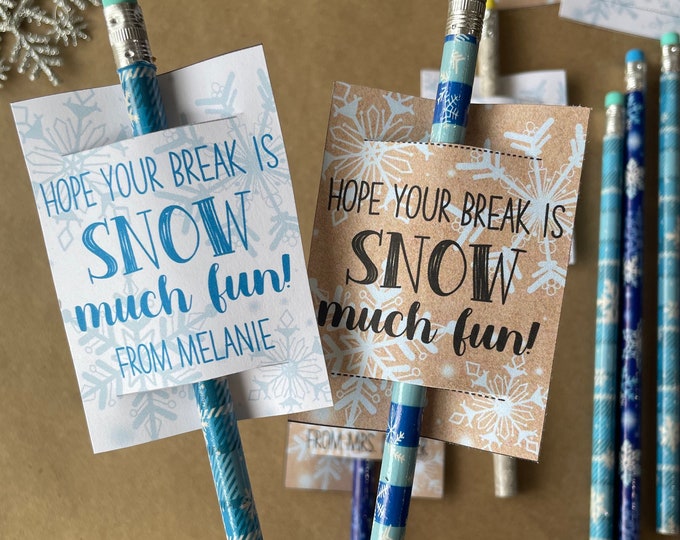 HOPE YOUR BREAK IS
SNOW
much fun!
FROM MELANIE
HOPE YOUR BREAK IS
SNOW
much fun!
FROM MRS.